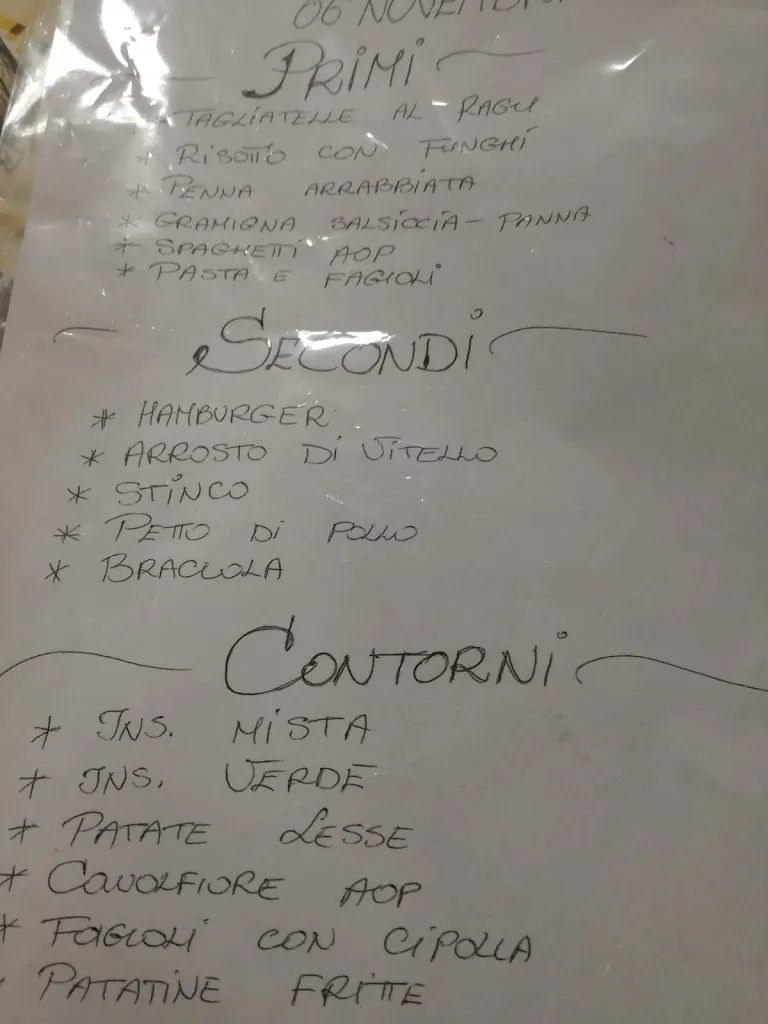 06 NOVEMBRE
PRIMI
* TAGLIATELLE AL RAGU
* RISOTTO CON FUNGHI
* PENNA ARRABBIATA
* GRAMIGNA SALSICCIA - PANNA
* SPAGHETTI AOP
* PASTA E FAGIOLI
SECONDI
* HAMBURGER
* ARROSTO DI VITELLO
* STINCO
* PETTO DI POLLO
* BRACIOLA
CONTORNI
* INS. MISTA
* INS. VERDE
* PATATE LESSE
* CAVOLFIORE AOP
* FAGIOLI CON CIPOLLA
* PATATINE FRITTE